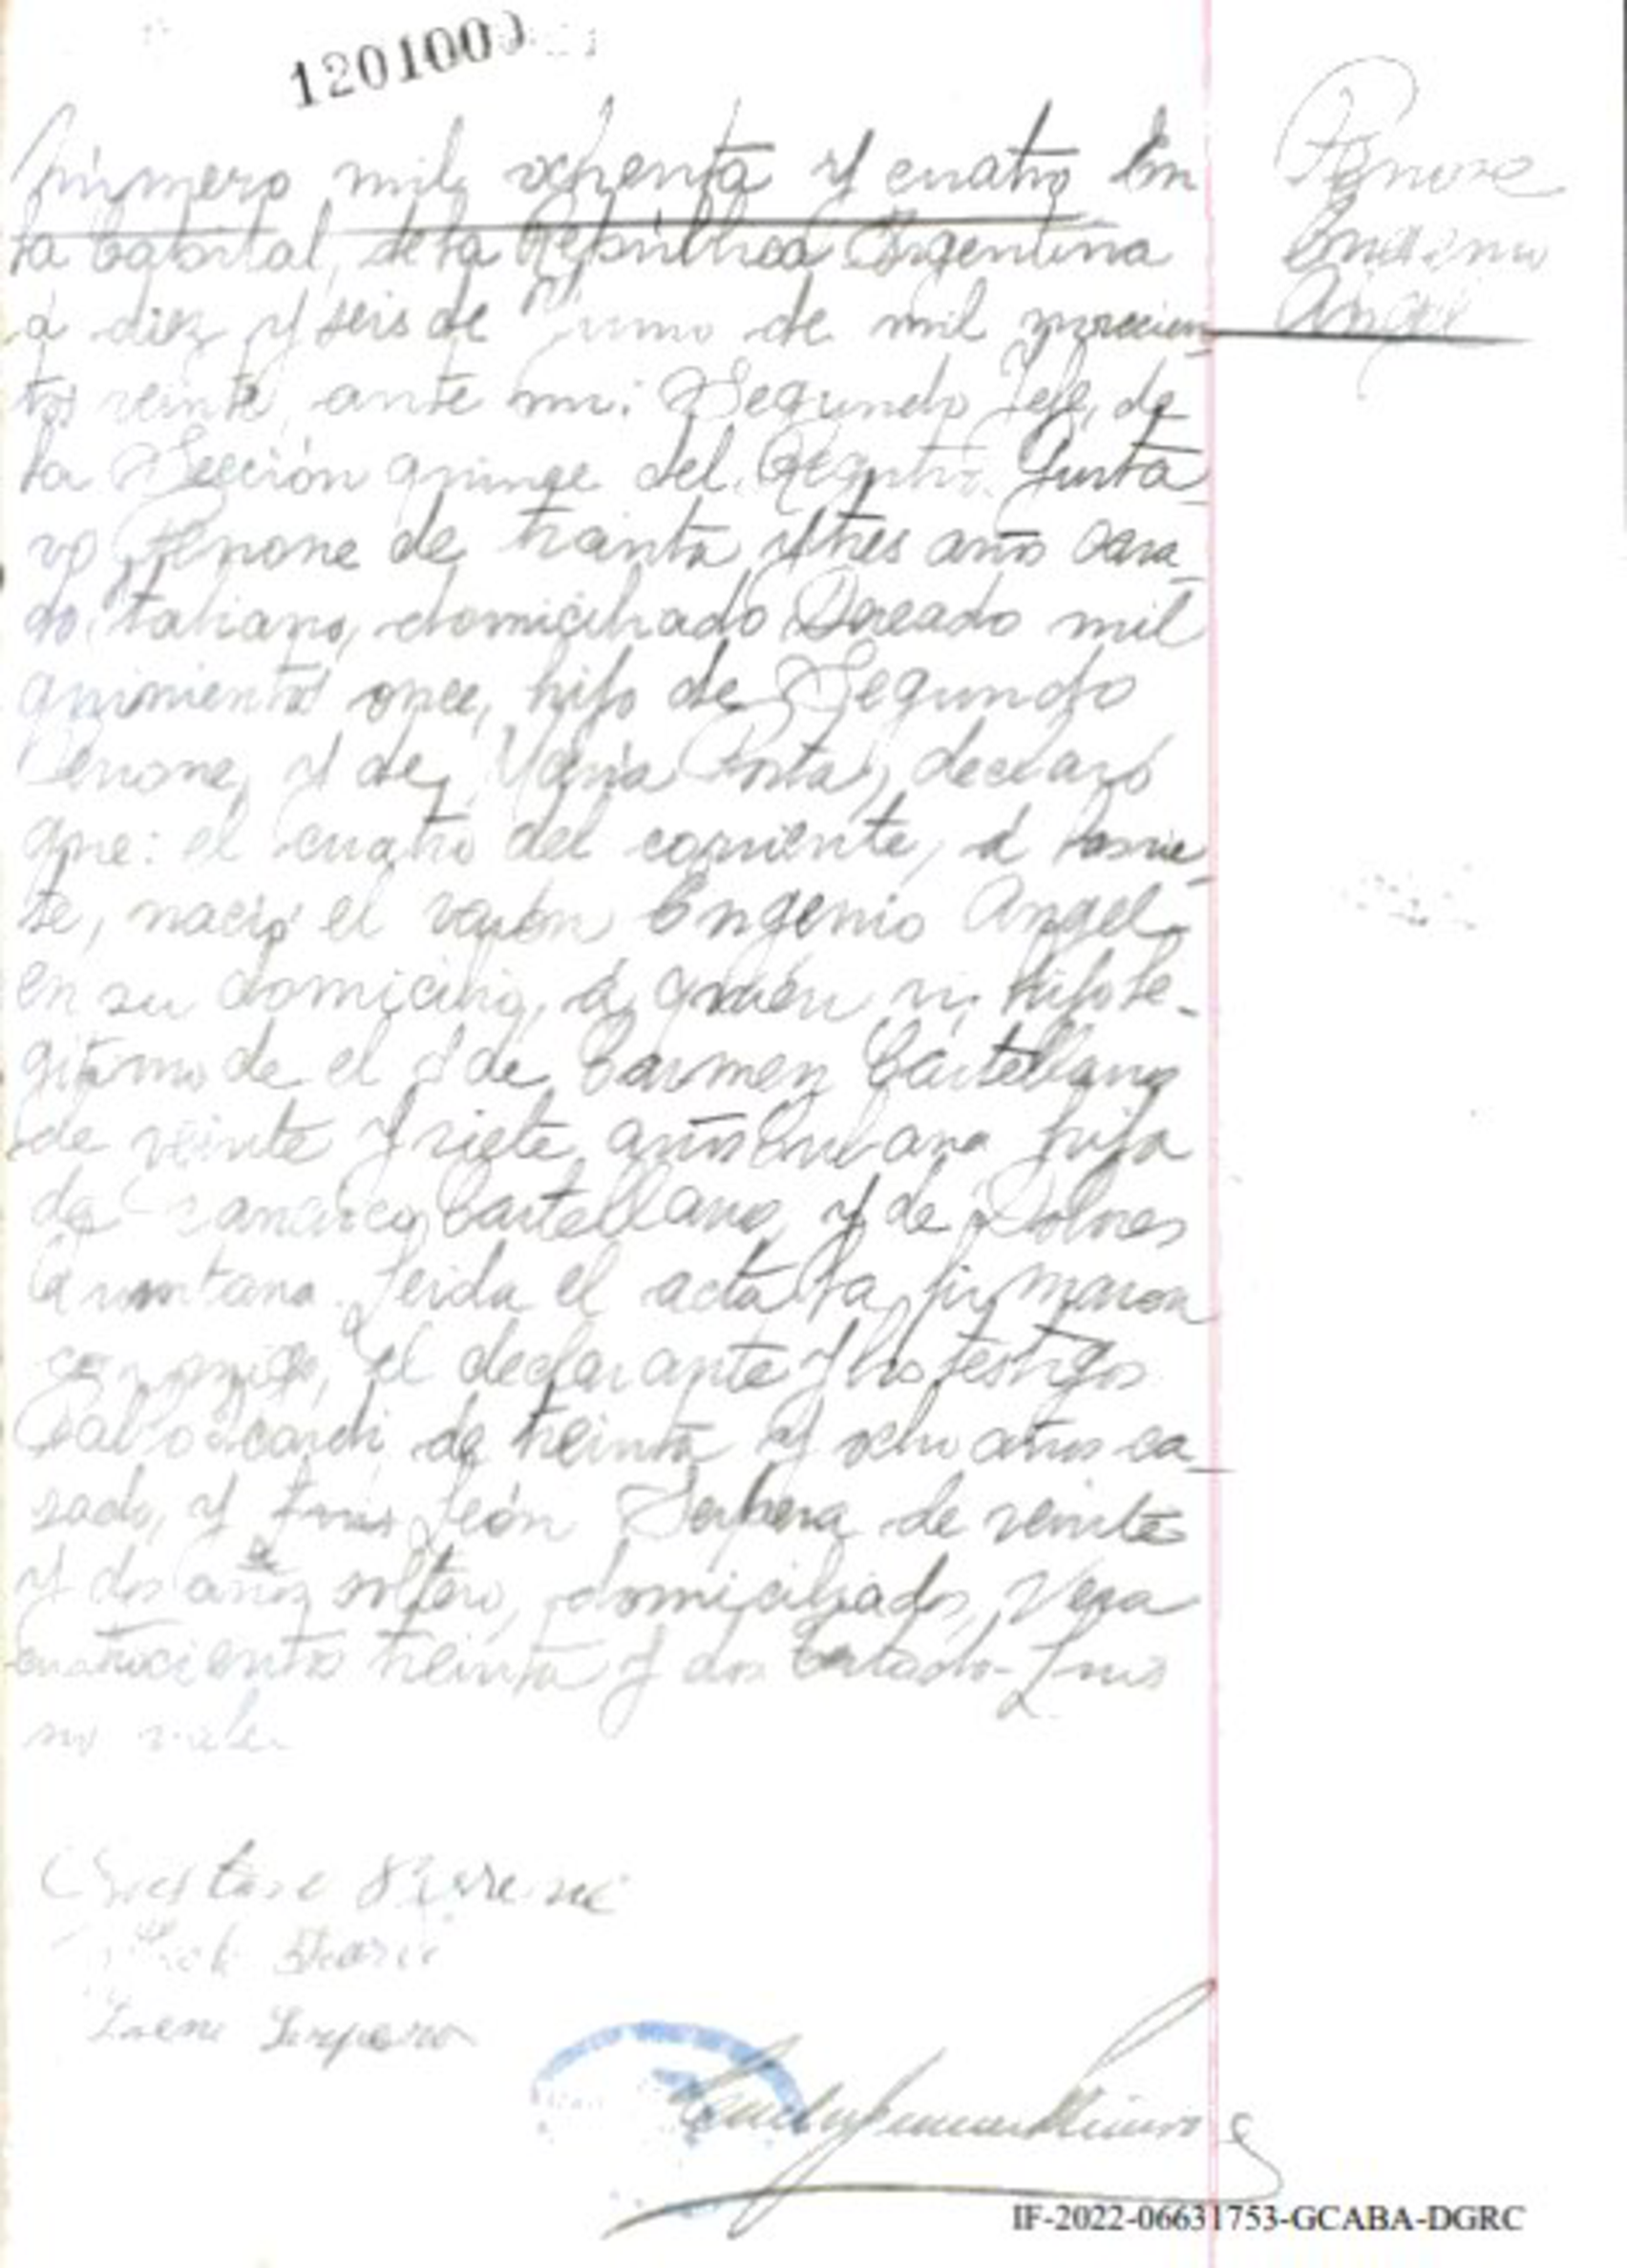 1201000
Número mil ochenta y cuatro En
la Capital de la República Argentina
Penone
Eugenio
Angel
á diez y seis de de mil novecien
tos veinte, ante mi: Segundo Jefe, de
la Sección quince del Registro. Gusta
vo Penone de treinta y tres años casa
do, italiano, domiciliado mil
quinientos once, hijo de Segundo
Penone, y de María Porta, declaró
que: el cuatro del corriente, á las sie
te, nació el varón Eugenio Angel
en su domicilio, á quién vi, hijo le-
gitimo de el y de Carmen Castellano
de veinte y siete años hija
de Castellano, y de Dolores
Quintana. Leida el acta la firmaron
conmigo, el declarante y los testigos
de treinta y ocho años ca
sado, y Luis León Serpera de veinte
y dos años soltero, domiciliados, Vera
cuatrocientos treinta y dos Testado-Luis
no vale
Penone
IF-2022-06631753-GCABA-DGRC